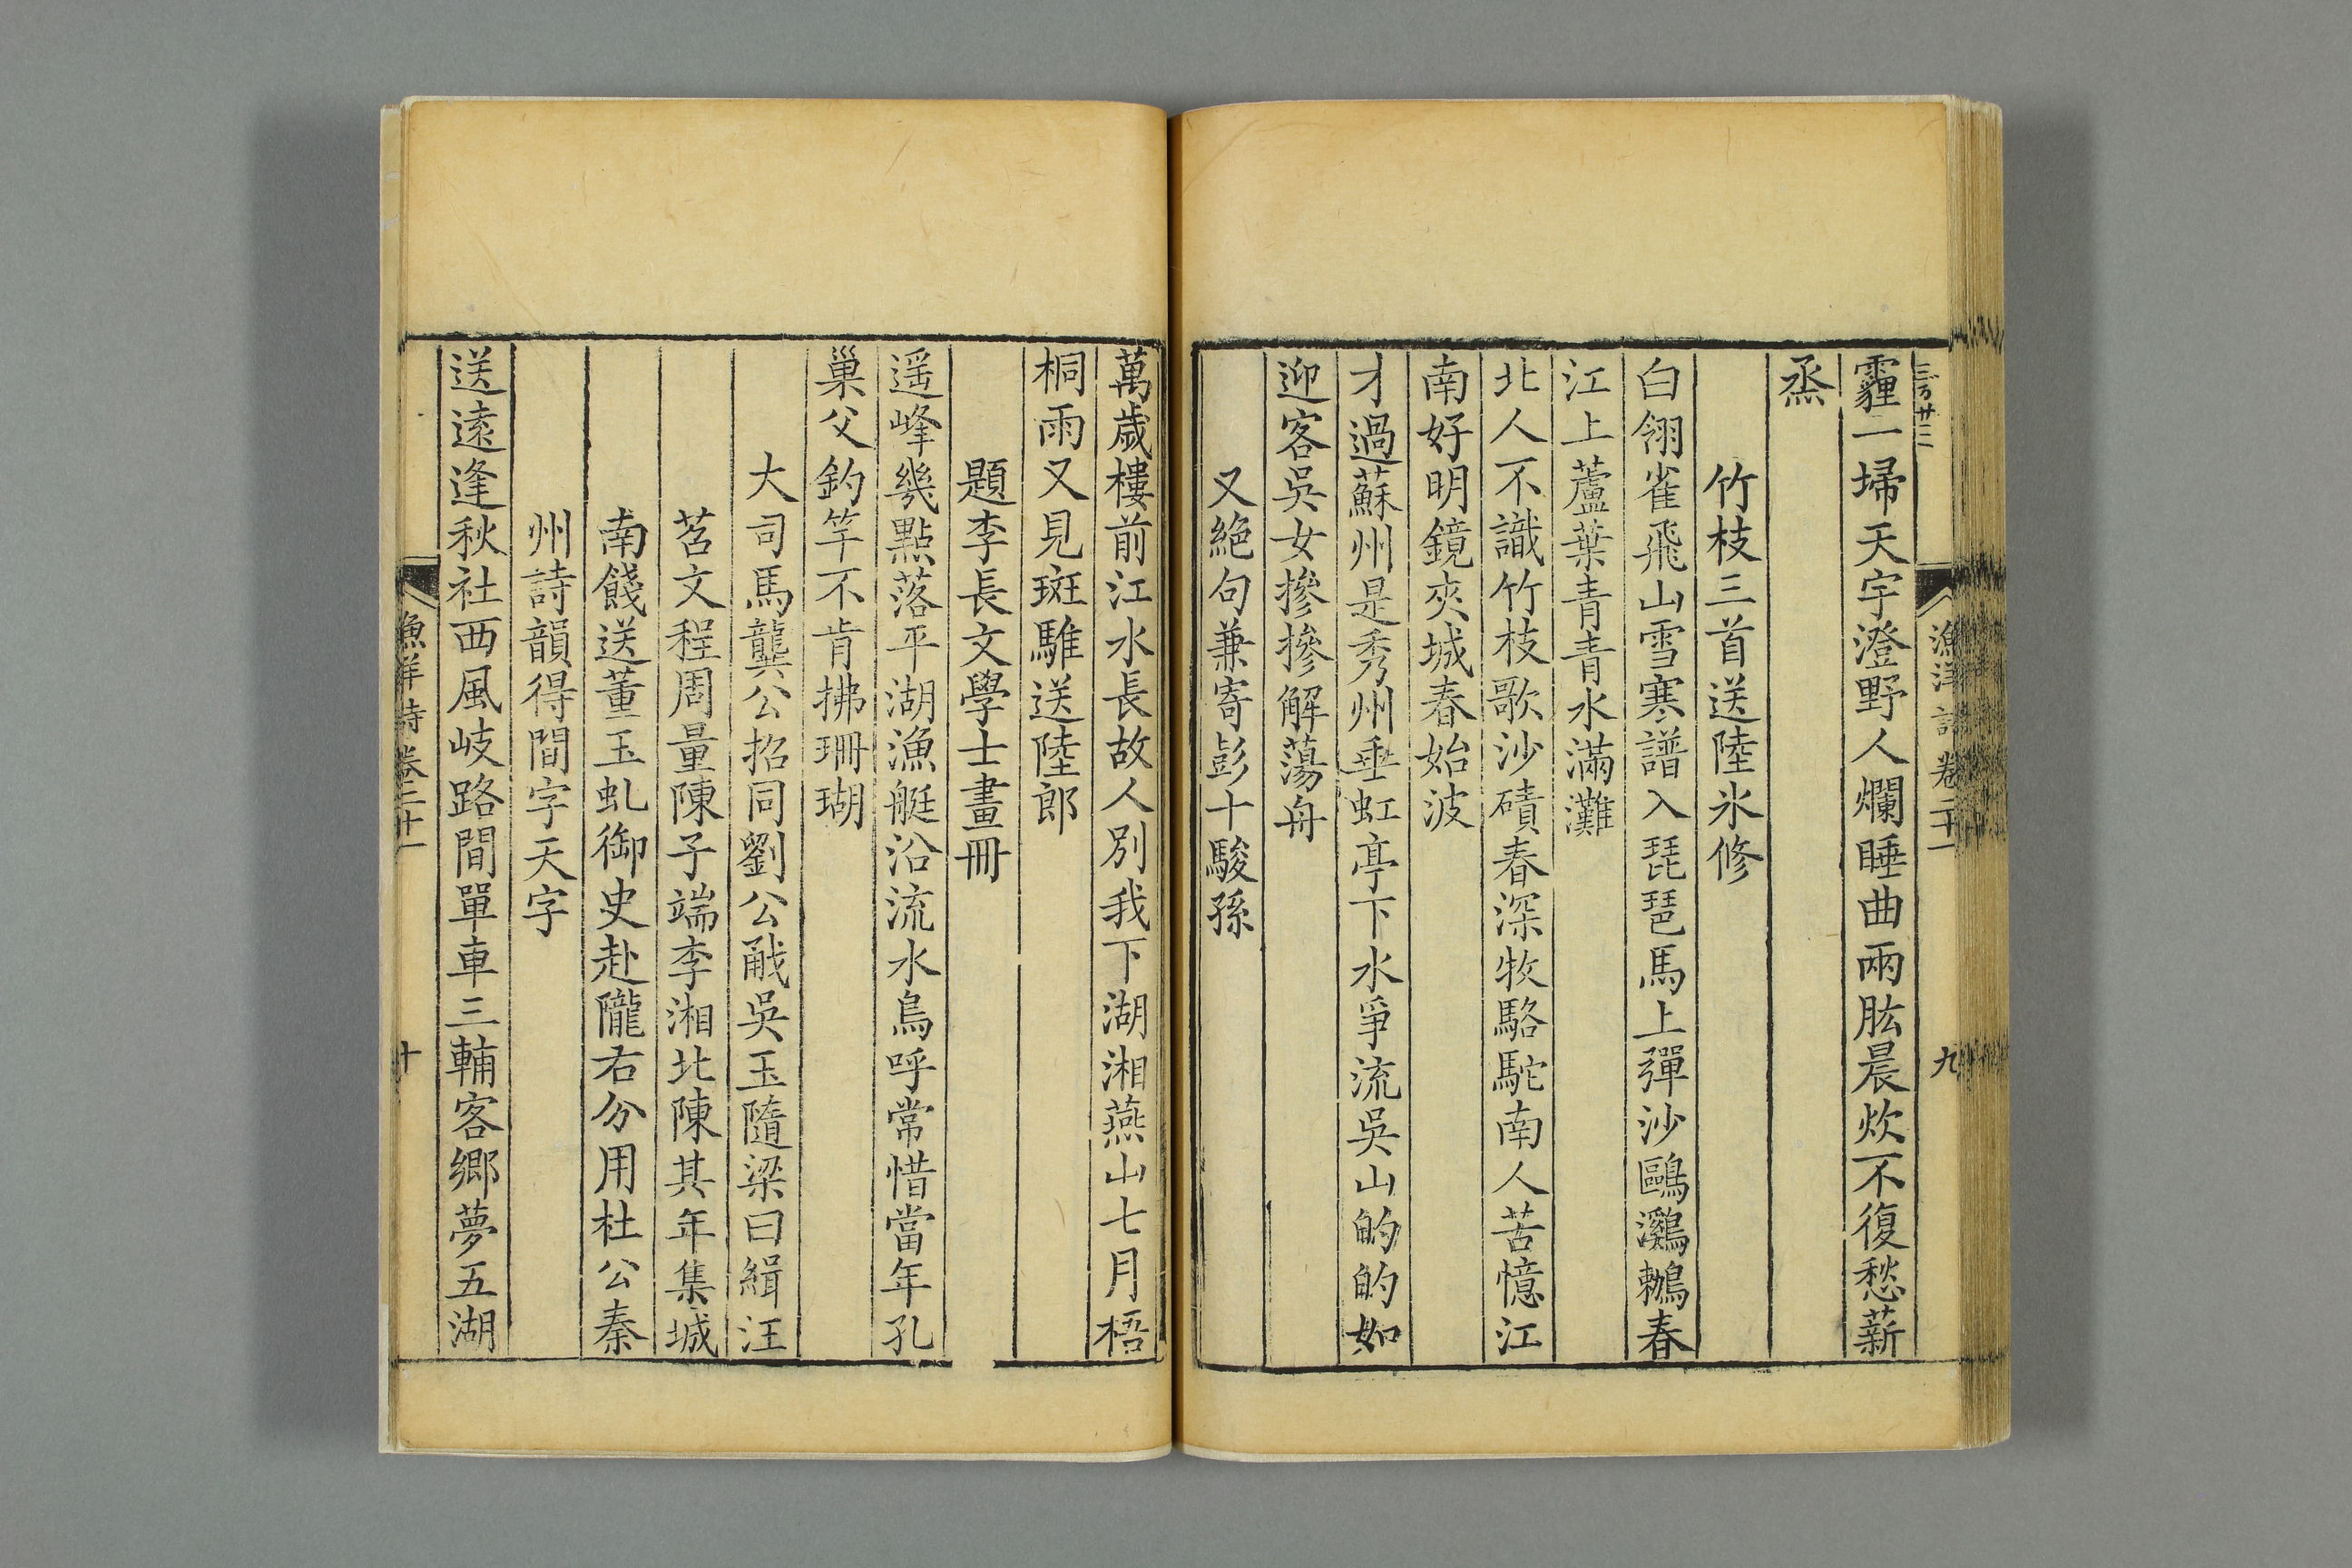 漁洋詩卷二十一 九
霾一埽天宇澄野人爛睡曲兩肱晨炊不復愁薪
烝
竹枝三首送陸氷修
白翎雀飛山雪寒譜入琵琶馬上彈沙鷗鸂鶒春
江上蘆葉青青水滿灘
北人不識竹枝歌沙磧春深牧駱駝南人苦憶江
南好明鏡夾城春始波
才過蘇州是秀州垂虹亭下水爭流吳山的的如
迎客吳女摻摻解蕩舟
又絶句兼寄彭十駿孫
萬歲樓前江水長故人別我下湖湘燕山七月梧
桐雨又見斑騅送陸郎
題李長文學士畫冊
遥峰幾點落平湖漁艇沿流水鳥呼常惜當年孔
巢父釣竿不肯拂珊瑚
大司馬龔公招同劉公㦷吳玉隨梁曰緝汪
苕文程周量陳子端李湘北陳其年集城
南餞送董玉虬御史赴隴右分用杜公秦
州詩韻得間字天字
送遠逢秋社西風岐路間單車三輔客鄉夢五湖
漁洋詩卷二十一 十